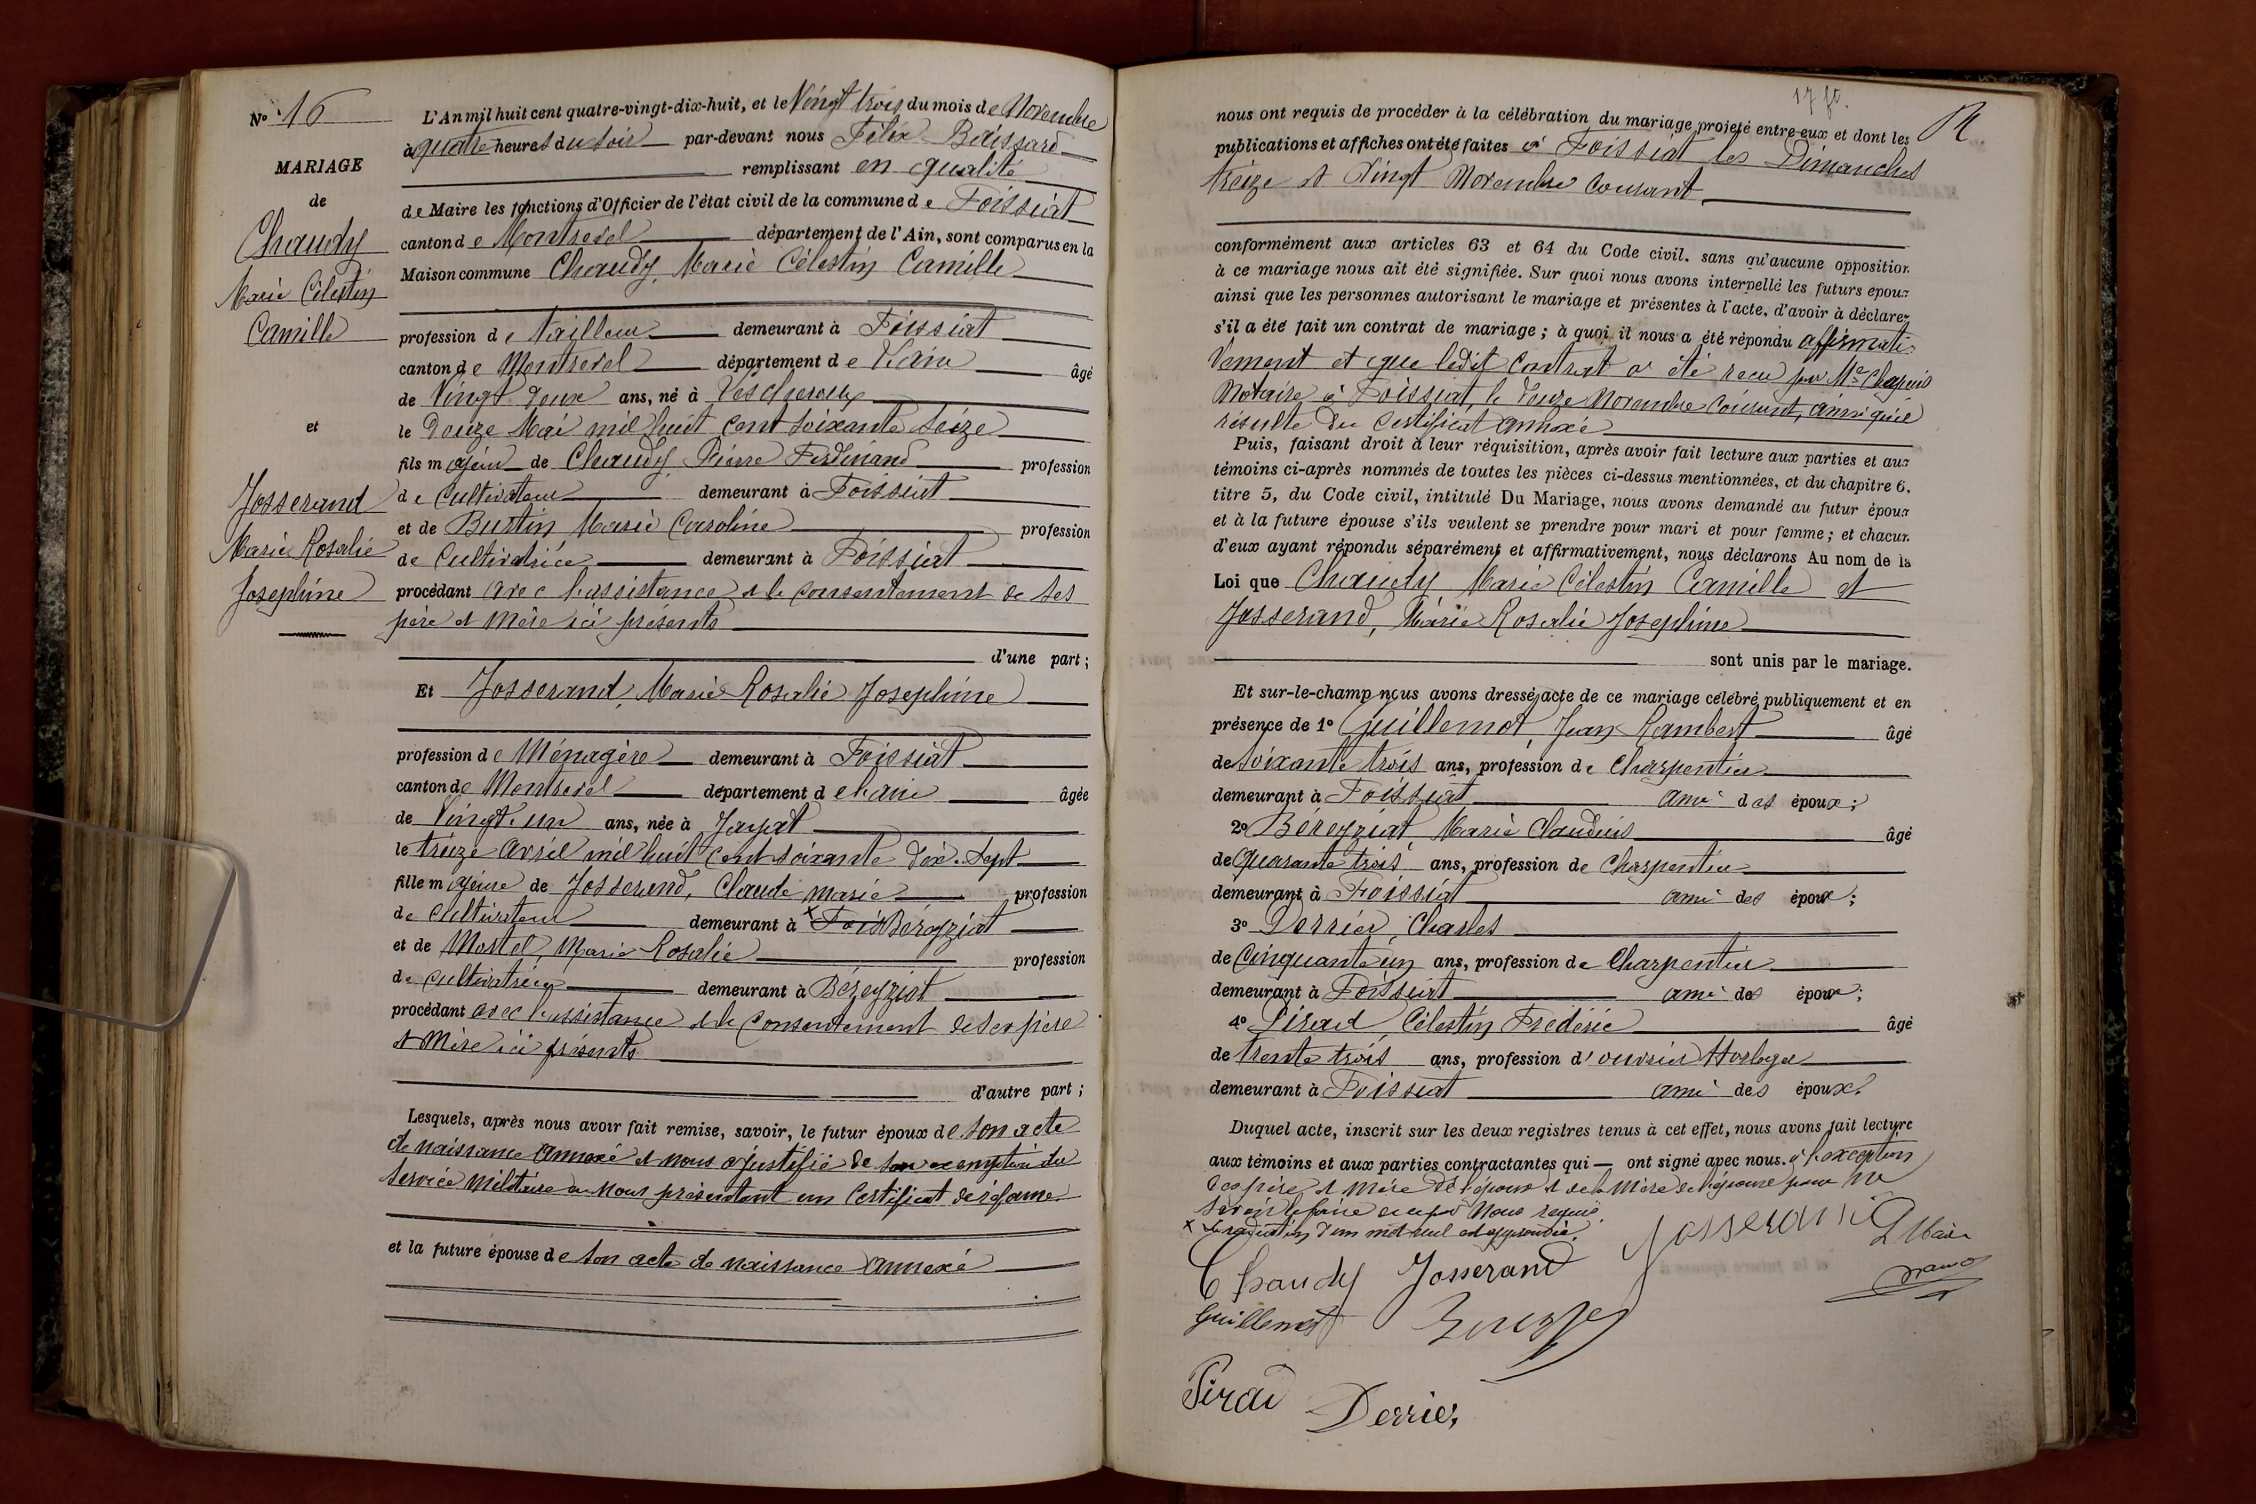 N° 16
MARIAGE
de
Chaudy
Marie Célestin
Camille
et
Josserand
Marie Rosalie
Josephine
L'An mil huit cent quatre-vingt-dix-huit, et le Vingt trois du mois de Novembre
à quatre heures du soir par-devant nous Félix Boissard
remplissant en qualité
de Maire les fonctions d'Officier de l'état civil de la commune de Foissiat
canton de Montrevel département de l'Ain, sont comparus en la
Maison commune Chaudy, Marie Célestin Camille
profession de Tailleur demeurant à Foissiat
canton de Montrevel département de l'ain âgé
de Vingt deux ans, né à Vescheroux
le Douze Mai mil huit cent soixante seize
fils majeur de Chaudy Pierre Ferdinand profession
de Cultivateur demeurant à Foissiat
et de Burtin Marie Caroline profession
de Cultivatrice demeurant à Foissiat
procédant avec l'assistance et le consentement de ses
père et mère ici présents
d'une part ;
Et Josserand, Marie Rosalie Josephine
profession de Ménagère demeurant à Foissiat
canton de Montrevel département de l'ain âgée
de Vingt-un ans, née à Jayat
le treize avril mil huit cent soixante dix-sept
fille majeure de Josserand, Claude Marie profession
de Cultivateur demeurant à x Fois Béréyziat
et de Mostel, Marie Rosalie profession
de cultivatrice demeurant à Béreyziat
procédant avec l'assistance et le Consentement de ses père
et Mère ici présents
d'autre part ;
Lesquels, après nous avoir fait remise, savoir, le futur époux de son acte
de naissance annexé et nous a justifié de son exemption du
service militaire en nous présentant un Certificat de réforme
et la future épouse de son acte de naissance annexé
17 fo.
nous ont requis de procéder à la célébration du mariage projeté entre eux et dont les
publications et affiches ont été faites à Foissiat les Dimanches
treize et Vingt Novembre courant
conformément aux articles 63 et 64 du Code civil. sans qu'aucune opposition
à ce mariage nous ait été signifiée. Sur quoi nous avons interpellé les futurs époux
ainsi que les personnes autorisant le mariage et présentes à l'acte, d'avoir à déclarer
s'il a été fait un contrat de mariage ; à quoi il nous a été répondu affirmati-
vement et que ledit contrat a été reçu par Me Chapuis
Notaire à Foissiat, le douze Novembre courant, ainsi qu'il
résulte du certificat annexé
Puis, faisant droit à leur réquisition, après avoir fait lecture aux parties et aux
témoins ci-après nommés de toutes les pièces ci-dessus mentionnées, et du chapitre 6,
titre 5, du Code civil, intitulé Du Mariage, nous avons demandé au futur époux
et à la future épouse s'ils veulent se prendre pour mari et pour femme ; et chacun
d'eux ayant répondu séparément et affirmativement, nous déclarons Au nom de la
Loi que Chaudy, Marie Célestin Camille et
Josserand, Marie Rosalie Josephine
sont unis par le mariage.
Et sur-le-champ nous avons dressé acte de ce mariage célébré publiquement et en
présence de 1° Guillemot, Jean Rambert âgé
de soixante trois ans, profession de Charpentier
demeurant à Foissiat ami des époux ;
2° Béreyziat Marie Claudius âgé
de quarante trois ans, profession de charpentier
demeurant à Foissiat ami des époux ;
3° Derrier, Charles
de Cinquante un ans, profession de Charpentier
demeurant à Foissiat ami des époux ;
4° Pirad, Célestin Frédéric âgé
de trente trois ans, profession d'ouvrier Horloger
demeurant à Foissiat ami des époux.
Duquel acte, inscrit sur les deux registres tenus à cet effet, nous avons fait lecture
aux témoins et aux parties contractantes qui — ont signé avec nous. à l'exception
des père et mère de l'époux et de la Mère de l'épouse pour ne
savoir le faire de ce par Nous requis.
x la radiation d'un mot seul est approuvée.
C Chaudy Josserand Josserand Le Maire
Guillemot
Pirad Derrier